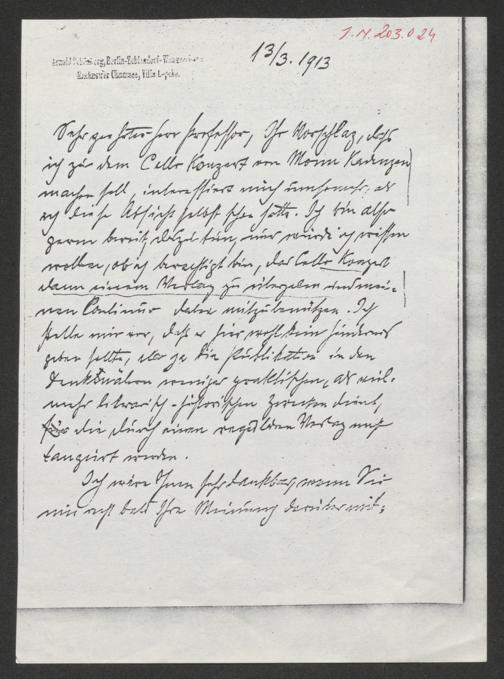 I.N. 203.024
13/3. 1913
Arnold Schönberg, Berlin-Zehlendorf-Wannseebahn
Machnower Chaussee, Villa Lepcke.
Sehr geehrter Herr Professor, Ihr Vorschlag, dass
ich zu dem Cello Konzert von Monn Kadenzen
machen soll, interessiert mich umsomehr, als
ich diese Absicht selbst schon hatte. Ich bin also
gerne bereit, das zu tun, nur würde ich wissen
wollen, ob ich berechtigt bin, das Cello Konzert
dann einem Verlag zu übergeben und mei-
nen Continuo dabei mitzubenützen. Ich
stelle mir vor, dass es hier wohl kein Hindernis
geben sollte, da ja die Publikation in den
Denkmälern weniger praktischen, als viel-
mehr literarisch-historischen Zwecken dient,
die durch einen regulären Verlag nicht
tangiert werden.
Ich wäre Ihnen sehr dankbar, wenn Sie
mir recht bald Ihre Meinung darüber mit-